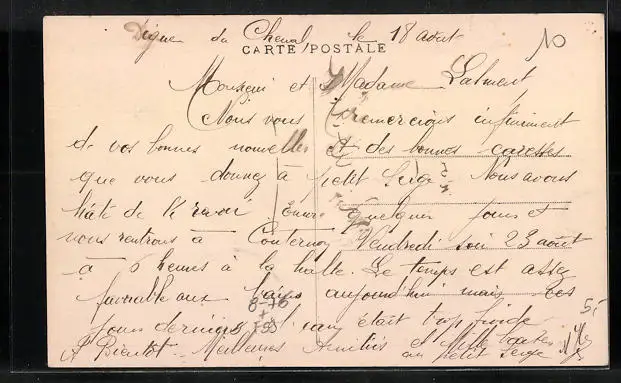 Digue du Cheval le 18 aout
10
CARTE POSTALE
Monsieur et Madame Lalment
Nous vous remercions infiniment
de vos bonnes nouvelles et des bonnes caresses
que vous donnez à petit Serge. Nous avons
hâte de le revoir. Encore quelques jours et
nous rentrons à Vendredi soir 23 aout
à 6 heures à la halte. Le temps est assez
favorable aux bains aujourd'hui mais ces
jours derniers l'eau était trop froide
A Bientôt Meilleures Amitiés et Mille baisers
au petit Serge
5-